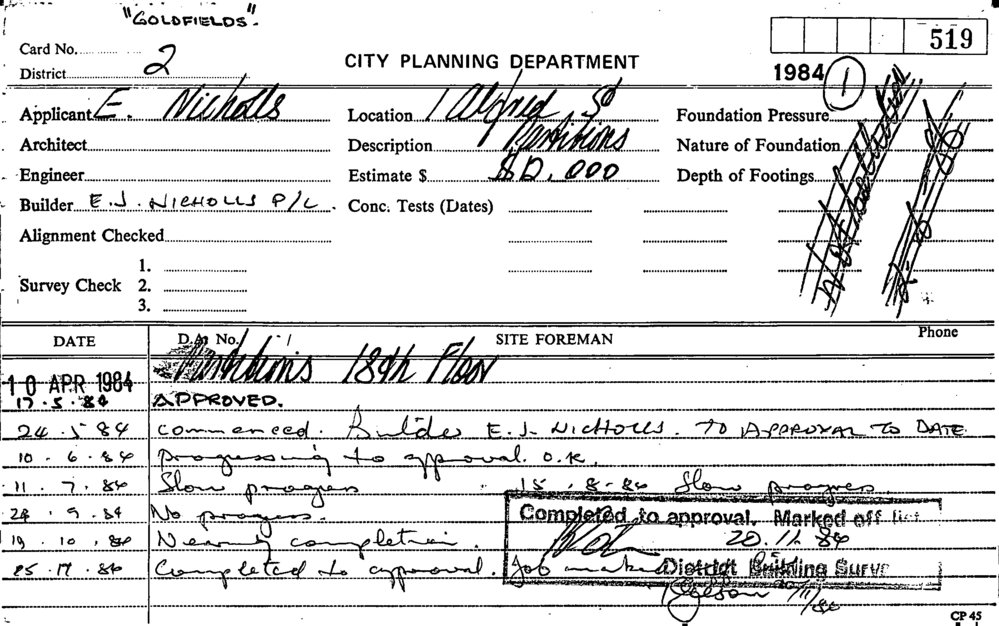 "GOLDFIELDS".
Card No. 519
District 2
CITY PLANNING DEPARTMENT
1984 1
Applicant E. Nicholls
Location 1 Alfred St
Foundation Pressure
Architect
Description Partitions
Nature of Foundation
Engineer
Estimate $ $12,000
Depth of Footings
Builder E.J. NICHOLLS P/L.
Conc. Tests (Dates)
Alignment Checked
Survey Check 1. 2. 3.
DATE D.A. No. SITE FOREMAN Phone
Partitions 18th Floor
10 APR 1984
17.5.84 APPROVED.
24.5.84 commenced. Builder E.J. NICHOLLS. TO APPROVAL TO DATE
10.6.84 progressing to approval. O.K.
11.7.84 Slow progress 15.8.84 Slow progress.
24.9.84 No progress.
19.10.84 Nearing completion.
Completed to approval. Marked off list
20.11.84
Completed to approval. Job marked
District Building Surv
20/11/84
CP 45